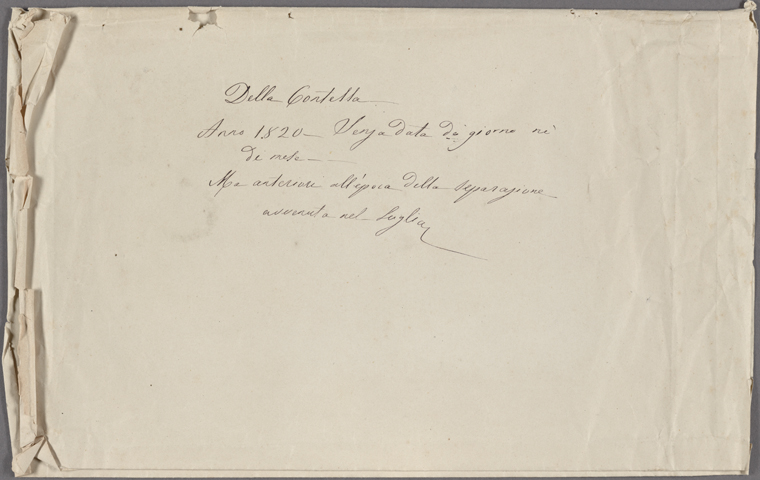 Della Contessa
Anno 1820 – Senza data di giorno nè
di mese –
Ma anteriori all'época della separazione
avvenuta nel luglio